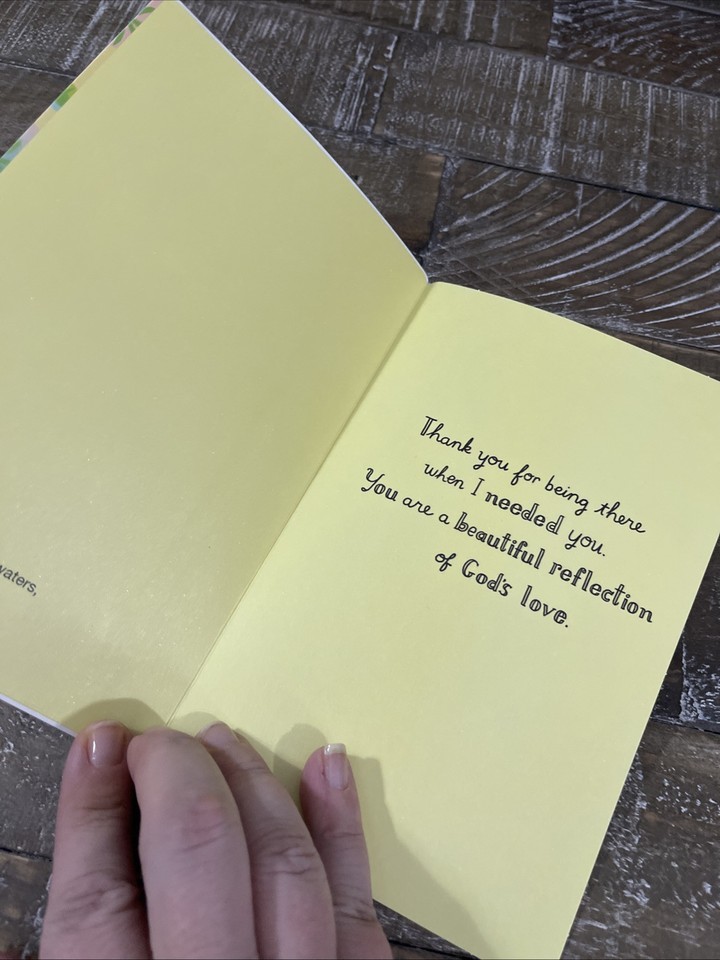 waters,
Thank you for being there
when I needed you.
You are a beautiful reflection
of God's love.